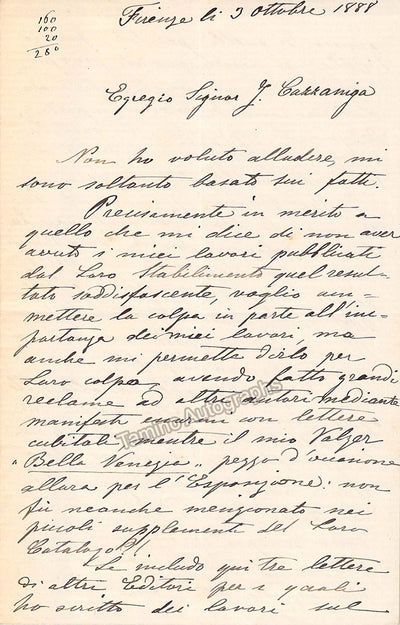 160
100
20
280
Firenze li 3 Ottobre 1888
Egregio Signor J. Cazzaniga
Non ho voluto alludere, mi
sono soltanto basato sui fatti.
Precisamente in merito a
quello che mi dice di non aver
avuto i miei lavori pubblicati
dal Loro Stabilimento quel resul=
tato soddisfascente, voglio am=
mettere la colpa in parte all'im=
portanza dei miei lavori, ma
anche mi permetta dirlo per
Loro colpa, avendo fatto grandi
reclame ad altri autori mediante
manifesti con lettere
cubitali mentre il mio Valzer
"Bella Venezia" pezzo d'occasione
allora per l'Esposizione: non
fu neanche menzionato nei
piccoli supplementi del Loro
Catalogo?!
Le includo qui tre lettere
di altri Editori per i quali
ho scritto dei lavori sul
Tamino Autographs